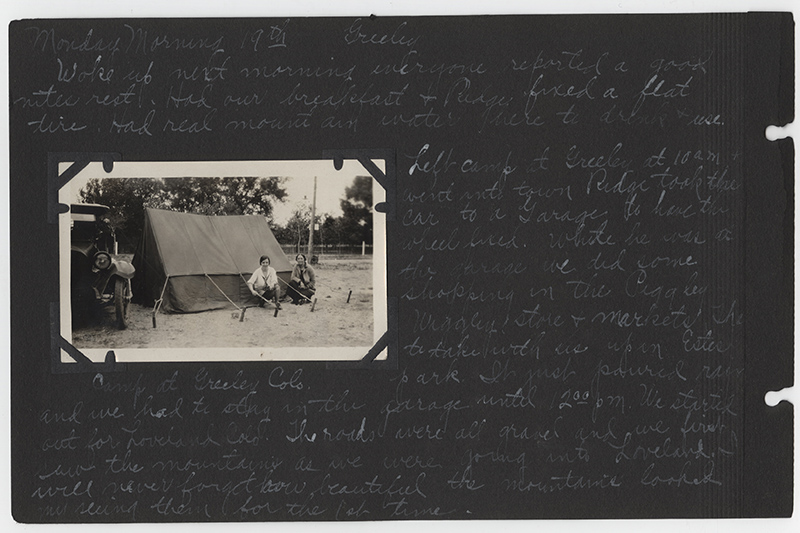 Monday Morning 19th Greeley
Woke up next morning everyone reported a good
nites rest. Had our breakfast & Ridge fixed a flat
tire. Had real mountain water here to drink & use.
Left camp at Greeley at 10 am &
went into town Ridge took the
car to a Garage to have the
wheel fixed. While he was at
the garage we did some
shopping in the Piggley
Wiggley store & markets
to take with us up in Estes
park. It just poured rain
Camp at Greeley Colo.
and we had to stay in the garage until 12 00 pm. We started
out for Loveland Colo. The roads were all gravel and we first
saw the mountains as we were going into Loveland. I
will never forget how beautiful the mountains looked
my seeing them for the 1st time.